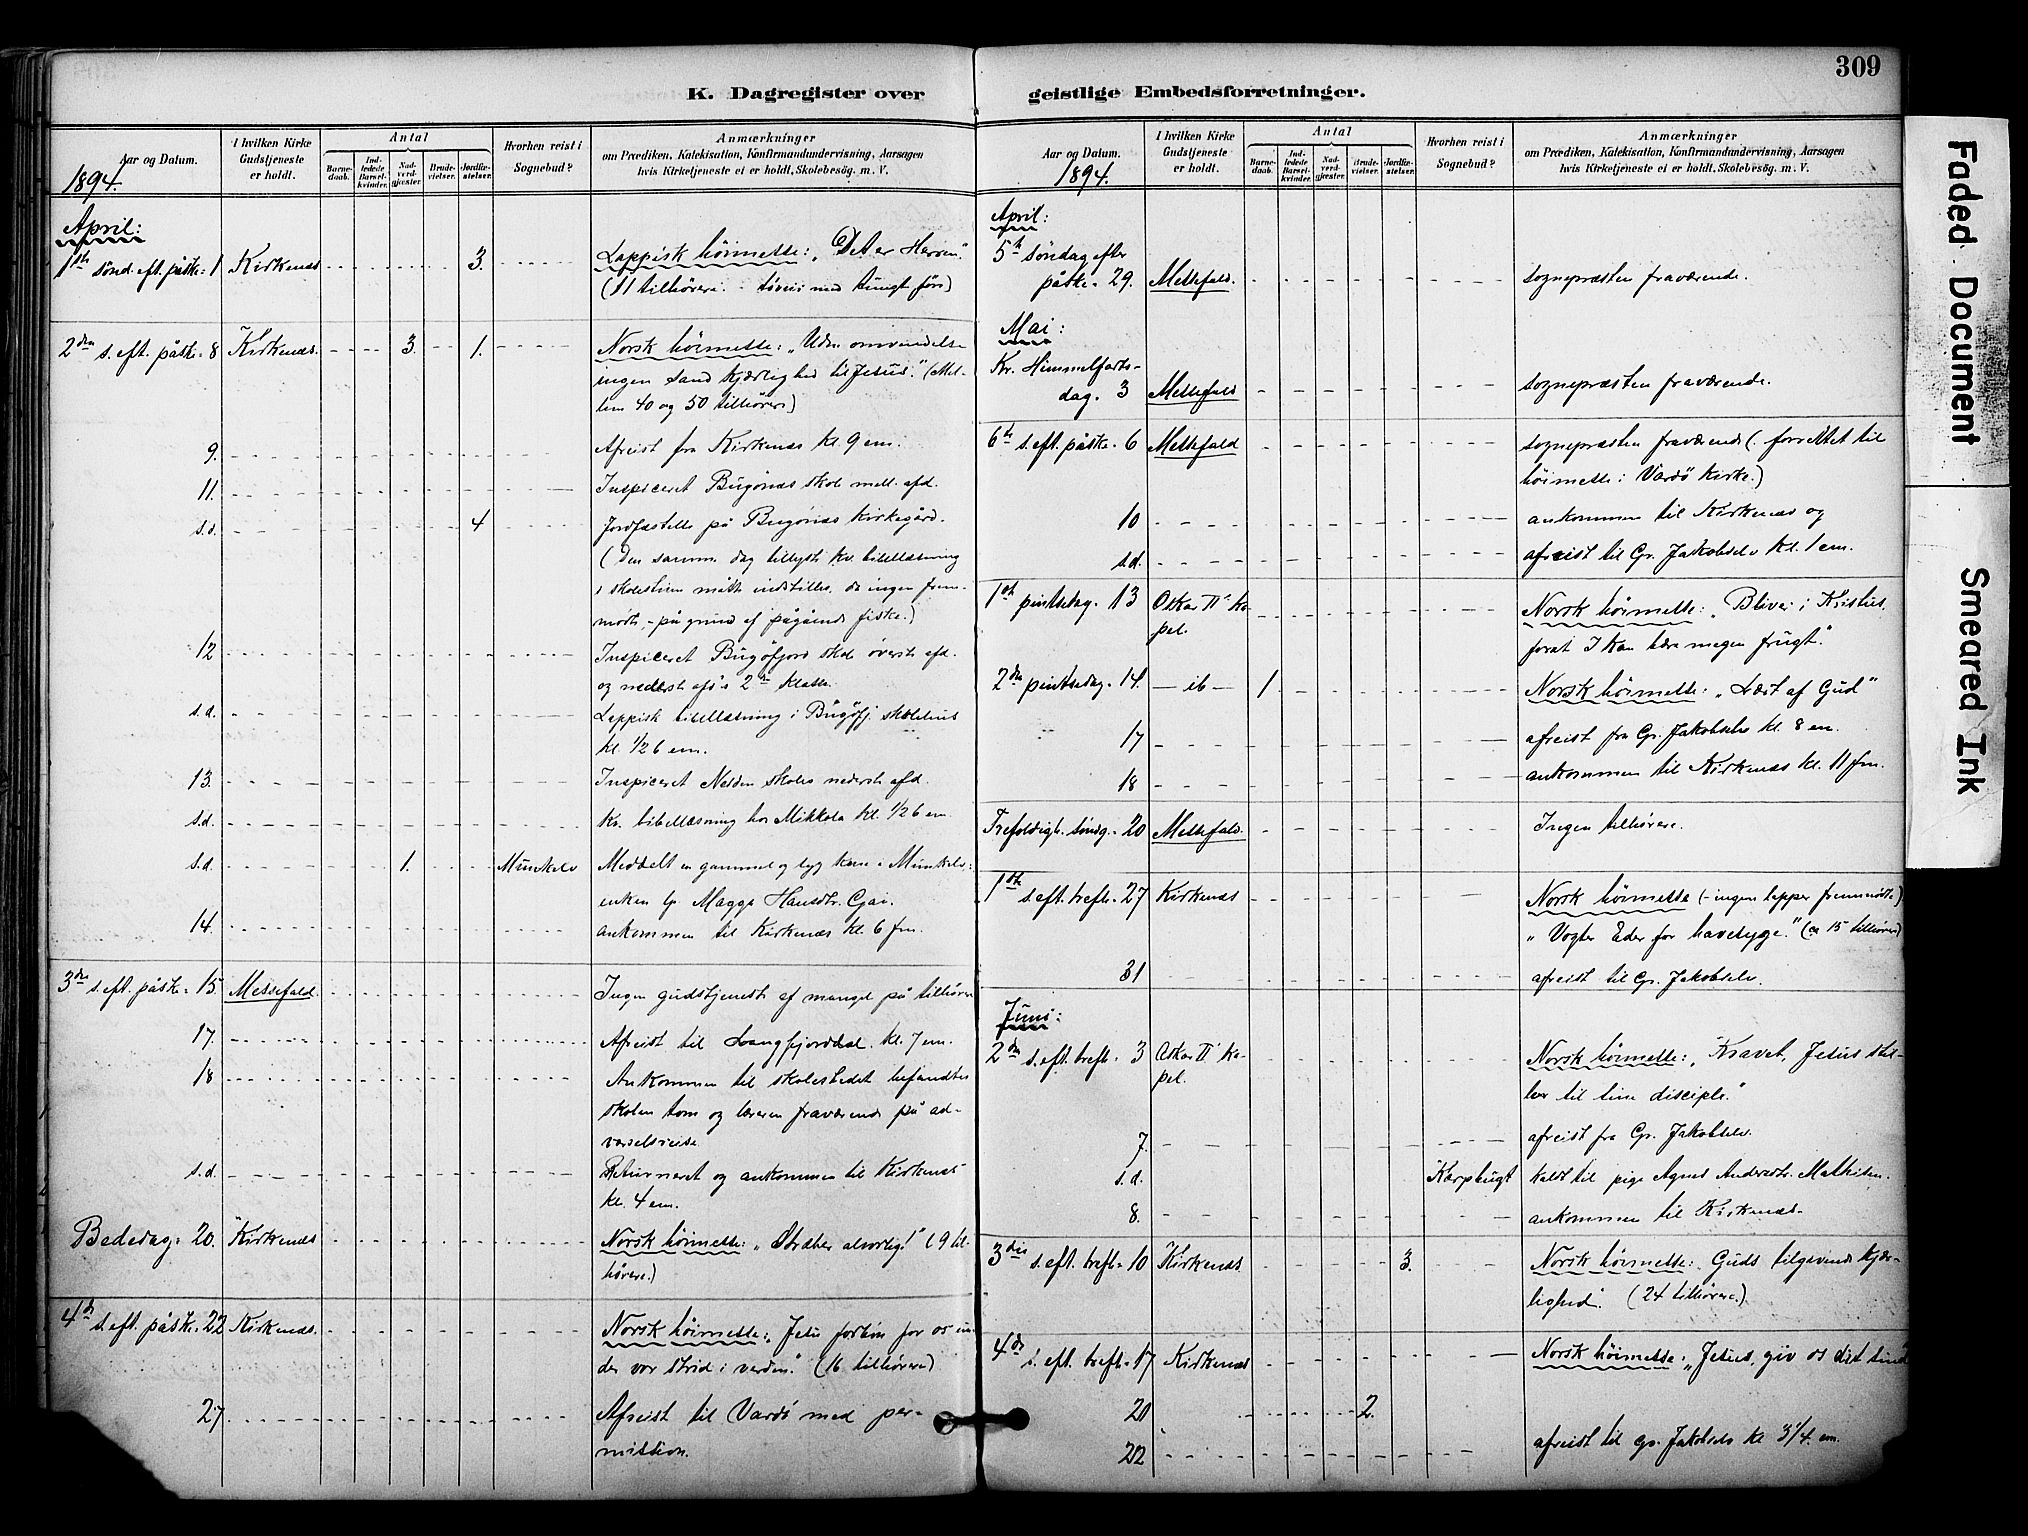 K. Dagregister over
Aar og Datum.
1894.
I hvilken Kirke
Gudstjeneste
er holdt.
Antal
Barne-
daab.
Ind-
ledede
Barsel-
kvinder.
Nad-
verd-
gjester.
Brude-
vielser.
Jordfæ-
stelser.
Hvorhen reist i
Sognebud?
Anmærkninger
om Prædiken, Katekisation, Konfirmandundervisning, Aarsagen
hvis Kirketjeneste ei er holdt, Skolebesøg. m. V.
April:
1ste sønd. eft. påske = 1 Kirkenæs 3. Lappisk höimesse: „Det er Herren."
(11 tilhörere. - föveir med tungt före)
2den s. eft. påske = 8 Kirkenæs. 3. 1. Norsk höimesse: „Uden omvendelse
ingen sand kjærlighed til Jesus." (Mel-
lem 40 og 50 tilhörere)
9. Afreist fra Kirkenæs kl. 9 em.
11. Inspiceret Bugönæs skole mell. afd.
s.d. 4 Jordfæstelse på Bugönæs kirkegård.
(Den samme dag tillyste kv. bibellæsning
i skolestuen måtte indstilles, da ingen frem-
mödte, - på grund af pågående fiske.)
12 Inspiceret Bugöfjord skole överste afd.
og nederst afd's 2den klasse.
s.d. Lappisk bibellæsning i Bugöfj. skolehus
kl. 1/2 6 em.
13. Inspiceret Neiden skoles nederste afd.
s.d. Kv. bibellæsning hos Mikkola kl. 1/2 6 em.
s.d. 1. Munkelv Meddelt en gammel og syg kone i Munkelv:
enken Magga Hansdtr. Gjai.
14. ankommen til Kirkenæs kl. 6 fm.
3die s. eft. påske = 15 Messefald. Ingen gudstjeneste af mangel på tilhörere
17. Afreist til Langfjorddal. kl. 7 em.
18 Ankommen til skolestedet befandtes
skolen tom og læreren fraværende på ad-
varselsreise.
s.d. Returneret og ankommen til Kirkenæs
kl. 4 em.
Bededag = 20. Kirkenæs Norsk höimesse: „Stræber alvorlig!" (9 til-
hörere.)
4de s. eft. påske = 22 Kirkenæs. Norsk höimesse: „Jesu forbön for os un-
der vor strid i verden." (16 tilhörere)
27. Afreist til Vardö med per-
mission.
309
geistlige Embedsforretninger.
Aar og Datum.
1894.
I hvilken Kirke
Gudstjeneste
er holdt.
Antal
Barne-
daab.
Ind-
ledede
Barsel-
kvinder.
Nad-
verd-
gjester.
Brude-
vielser.
Jordfæ-
stelser.
Hvorhen reist i
Sognebud?
Anmærkninger
om Prædiken, Katekisation, Konfirmandundervisning, Aarsagen
hvis Kirketjeneste ei er holdt, Skolebesøg. m. V.
April:
5te söndag efter
påske = 29. Messefald. sognepræsten fraværende.
Mai:
Kr. Himmelfarts-
dag. 3 Messefald sognepræsten fraværende.
6te s. eft. påske = 6 Messefald sognepræsten fraværende (: forrettet til
höimesse i Vardö kirke.)
10 ankommen til Kirkenæs og
s.d. afreist til Gr. Jakobselv kl. 1 em.
1ste pintsedag = 13 Oskar II's ka-
pel. Norsk höimesse: „Bliver i Kristus,
forat I kan bære megen frugt."
2den pintsedag = 14. — ib — 1 Norsk höimesse: „Lært af Gud"
17 afreist fra Gr. Jakobselv kl. 8 em.
18 ankommen til Kirkenæs kl. 11 fm.
Trefoldigh. söndg. = 20 Messefald. Ingen tilhörere.
1ste s. eft. trefh. = 27 Kirkenæs Norsk höimesse (- ingen lapper fremmödte)
„Vogter Eder for havesyge." (ca 15 tilhörere)
31 afreist til Gr. Jakobselv.
Juni:
2den s. eft. trefh. = 3 Oskar II' ka-
pel. Norsk höimesse: „Kravet, Jesus stil-
ler til sine disciple."
7. afreist fra Gr. Jakobselv.
s.d. Karpbugt kaldt til pige Agnes Andersdtr. Mathisen.
8. ankommen til Kirkenæs.
3die s. eft. trefh. = 10 Kirkenæs 3. Norsk höimesse: „Guds tilgivende kjær-
lighed". (24 tilhörere.)
4de s. eft. trefh. = 17 Kirkenæs Norsk höimesse: „Jesus, giv os dit sind
20 2.
22 afreist til Gr. Jakobselv kl 3 1/4. em.
Faded Document
Smeared Ink